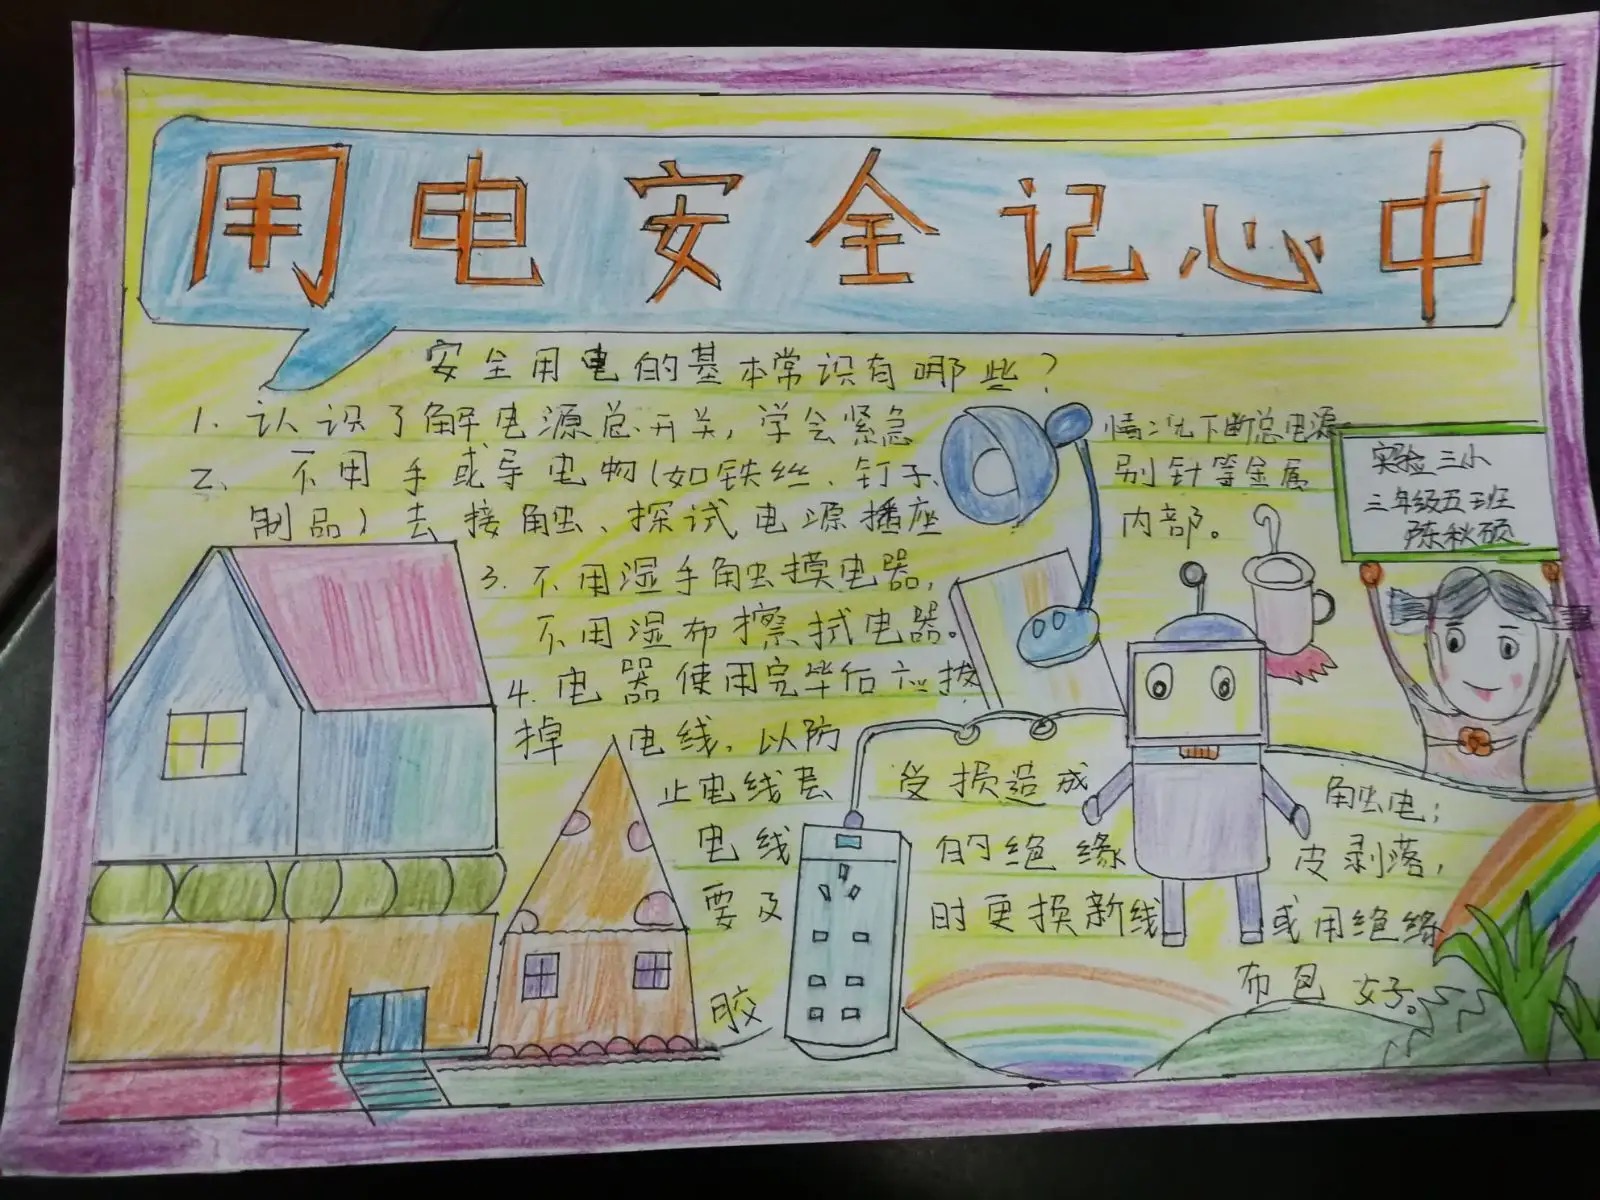 用电安全记心中
安全用电的基本常识有哪些？
1. 认识了解电源总开关，学会紧急情况下断总电源
2、不用手或导电物（如铁丝、钉子、别针等金属
制品）去接触、探试电源播座内部。
3. 不用湿手触摸电器，
不用湿布擦拭电器。
4. 电器使用完毕后应拔
掉电线，以防
止电线丟受损造成触电；
电线的绝缘皮剥落，
要及时更换新线或用绝缘
胶布包好。
实验三小
三年级五班
陈秋硕